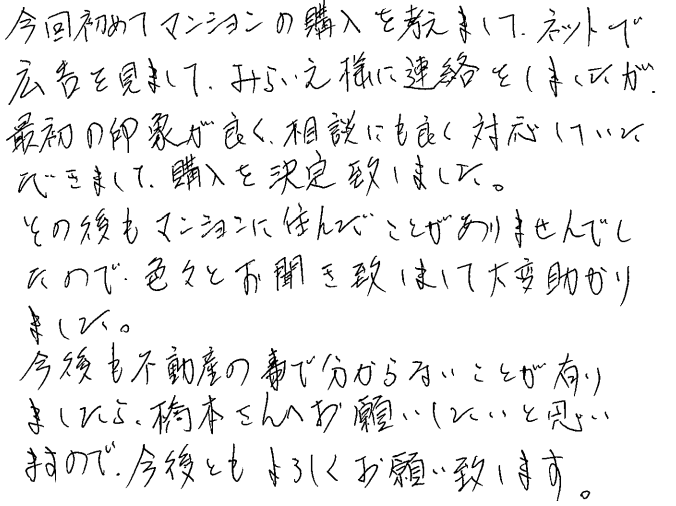 今回初めてマンションの購入を考えまして、ネットで
広告を見まして、みらいえ様に連絡をしましたが、
最初の印象が良く、相談にも良く対応していた
だきまして、購入を決定致しました。
その後もマンションに住んだことがありませんでし
たので、色々とお聞き致しまして大変助かり
ました。
今後も不動産の事で分からないことが有り
ましたら、橋本さんへお願いしたいと思い
ますので、今後ともよろしくお願い致します。